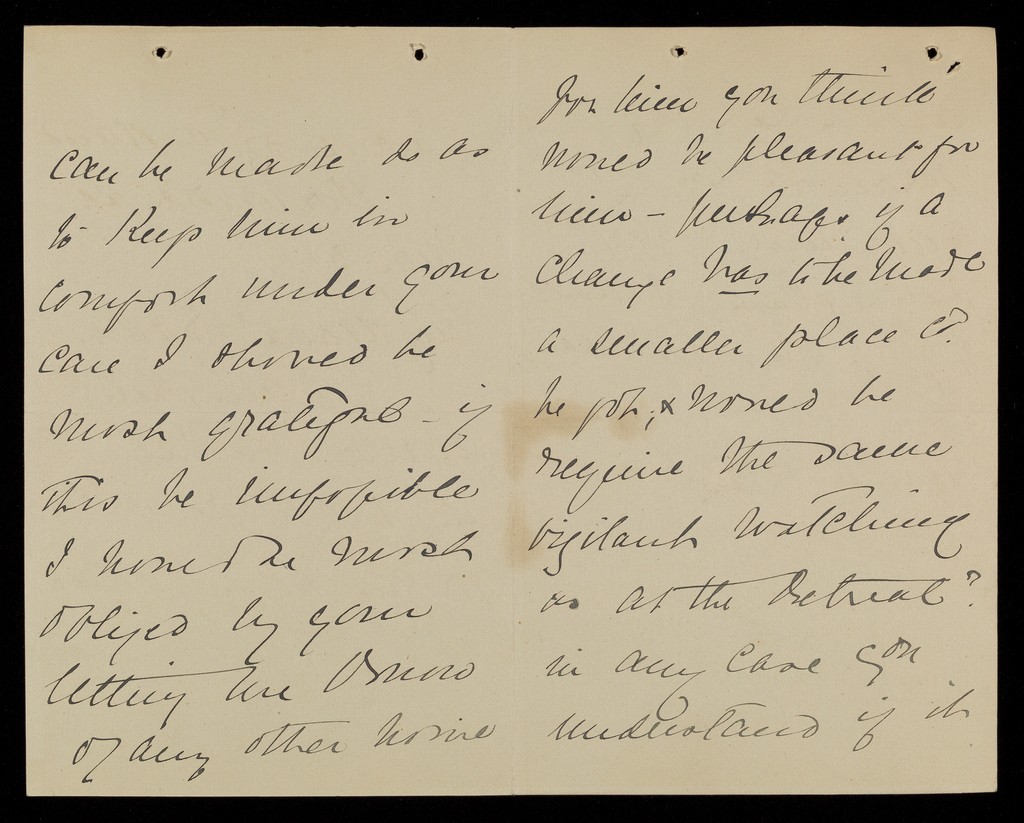 can be made so as
to Keep him in
comfort under your
care I should be
most grateful - if
this be impossible
I would be most
obliged by your
letting me Know
of any other home
for him you think
would be pleasant for
him - perhaps if a
change has to be made
a smaller place cd.
be got, & would he
require the same
vigilant watching
as at the Retreat?
in any case you
understand if it